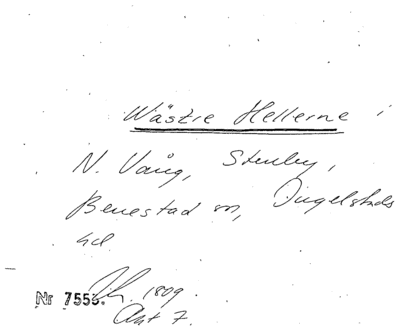 Wästre Hellerne i
N. Vång, Stenby,
Benestad sn, Ingelstads
hd.
Nr 7553. 1809.
Akt 7.